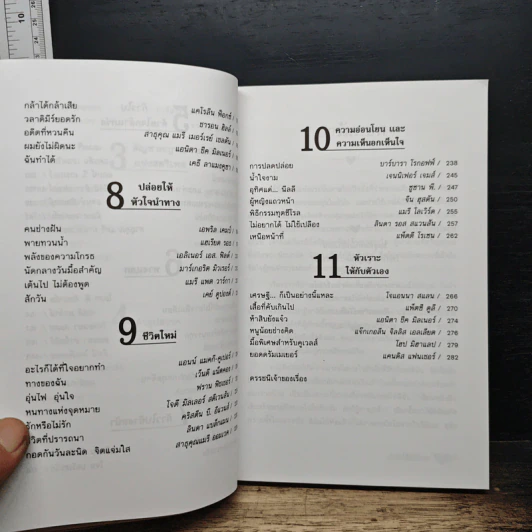 กล้าได้กล้าเสีย
แคโรลีน
วาลาดิมีร์ยอดรัก
ชารอน
อดีตที่หวนคืน
สาธุคุณ แมรี
ผมยังไม่ผิดนะ
แอนิตา ชีค มิลเนอร์
ฉันทำได้
เคธี ลาแมงคูซา
8 ปล่อยให้
หัวใจนำทาง
คนช่างฝัน
เอพริล เคมอรี
พายทวนน้ำ
แฮเรียต
พลังของความโกรธ
เอลิเนอร์ เอส.
นัดกลางวันมื้อสำคัญ
มาร์เกอริต
เต้นไป ไม่ต้องพูด
แมรี แพต
สักวัน
เคย์
9 ชีวิตใหม่
อะไรก็ได้ที่ใจอยากทำ
แอนน์
ทางของฉัน
เว้นดี
อุ่นไฟ อุ่นใจ
ฟราน
หนทางแห่งจุดหมาย
โจดี มิลเลอร์ สตีเวนสัน
รักหรือไม่รัก
คริสตีน บี.
ชีวิตที่ปรารถนา
ลินดา
กอดกันวันละนิด จิตแจ่มใส
สาธุคุณแมรี
10 ความอ่อนโยน และ
ความเห็นอกเห็นใจ
การปลดปล่อย
บาร์บารา โรกอฟฟ์ / 238
น้ำใจงาม
เจนนิเฟอร์ เจมส์ / 245
อุทิศแด่... นีลลี
ซูซาน พี. / 247
ผู้หญิงแถวหน้า
จีน ฮูสตัน / 250
พิธีกรรมทุตชีโรล
แมรี โลเวิร์ด / 255
ไม่อยากได้ ไม่ใช้เปลือง
ลินดา รอส สแวนสัน / 257
เหนือหน้าที่
แพ็ตตี โรเซน / 262
11 หัวเราะ
ให้กับตัวเอง
เศรษฐี... ก็เป็นอย่างนี้แหละ
โจแอนนา สแลน / 266
เสื่อที่คับเกินไป
แพ็ตซี ดูดี / 270
ท้าสิบยังแจ๋ว
แอนิตา ชีค มิลเนอร์ / 272
หนูน้อยช่างคิด
แจ็กเกอลีน จิลลิส เอลเลียต / 277
มื้อพิเศษสำหรับคูเวลส์
โฮป มิฮาแลป / 279
ยอดดรัมเมเยอร์
แคนดิส แฟนเธอร์ / 282
ดรรชนีเจ้าของเรื่อง